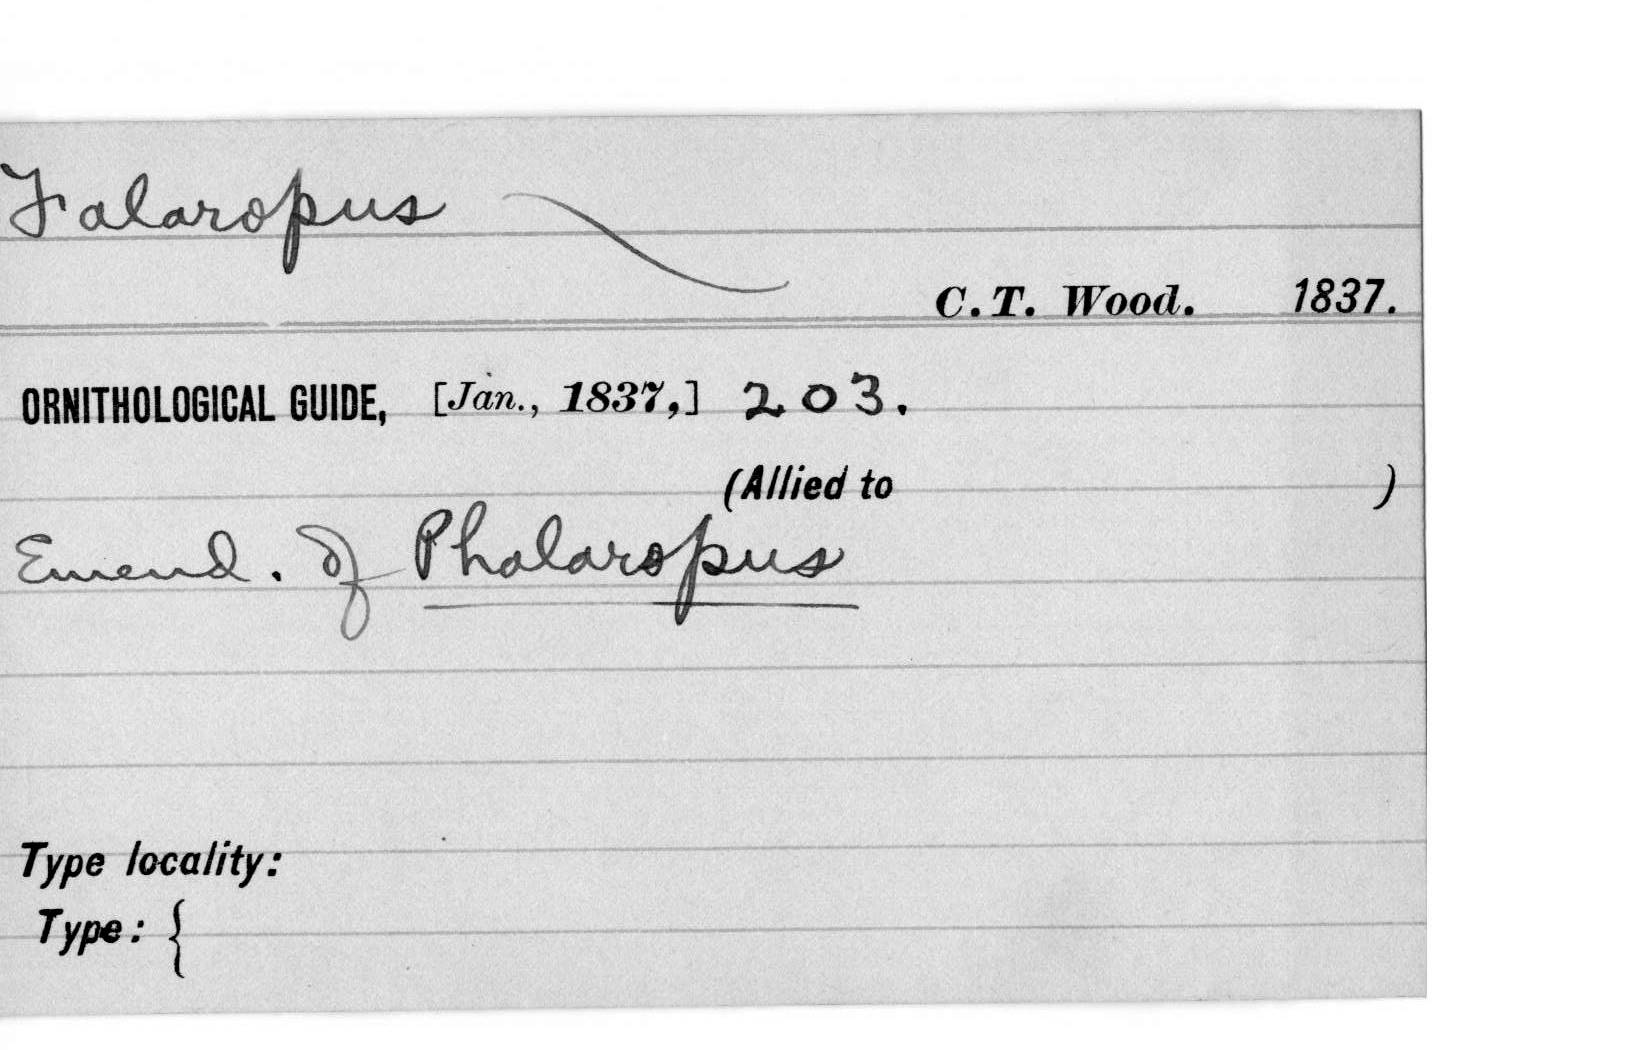 Falaropus
C.T. Wood. 1837.
ORNITHOLOGICAL GUIDE, [Jan., 1837,] 203.
(Allied to )
Emend. of Phalaropus
Type locality:
Type: {